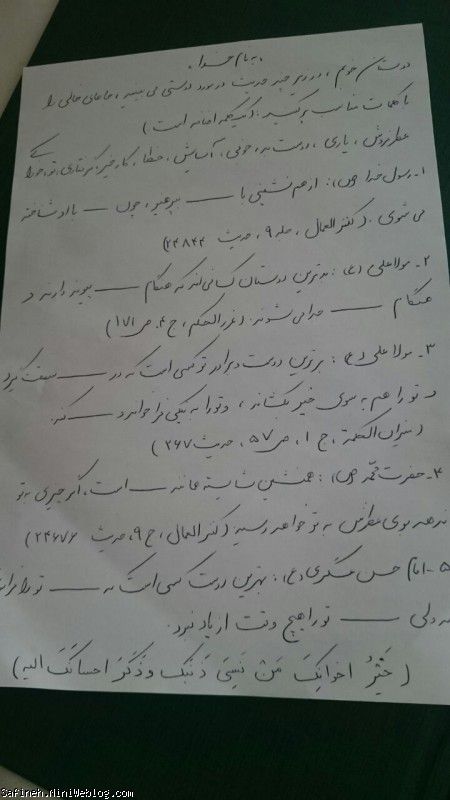 به نام خدا
دوستان خوبم، در زیر چند حدیث در مورد دوستی می بینید، جاهای خالی را
با کلمات مناسب پر کنید: (یک کلمه اضافه است)
عطرفروش، یاری، دوست بد، خوبی، آسایش، خطا، کار خیر، گرفتاری، تو، خدا
۱- رسول خدا (ص): از همنشینی با ــــ بپرهیز، چون ــــ با او شناخته
می شوی. (کنزالعمال، جلد ۹، حدیث ۲۴۸۴۴)
۲- مولا علی (ع): بدترین دوستان کسانی اند که هنگام ــــ پیوند دارند و
هنگام ــــ جدا می شوند. (غررالحکم، ج ۴، ص ۱۷۱)
۳- مولا علی (ع): برترین دوست و برادر تو کسی است که در ــــ سبقت گیرد
و تو را هم به سوی خیر بکشاند، و تو را به نیکی فراخواند و ــــ کند.
(میزان الحکمة، ج ۱، ص ۵۷، حدیث ۲۶۷)
۴- حضرت محمد (ص): همنشین شایسته مانند ــــ است، اگر چیزی به تو
ندهد بوی عطرش به تو خواهد رسید (کنزالعمال، ج ۹، حدیث ۲۴۶۷۶)
۵- امام حسن عسکری (ع): بهترین دوست کسی است که ــــ تو را
ولی ــــ تو را هیچ وقت از یاد نبرد.
(خَیْرُ اخوانِکَ مَنْ نَسِیَ ذَنْبَکَ وَ ذَکَرَ احسانَکَ الیه)
Safineh.MiniWeblog.com